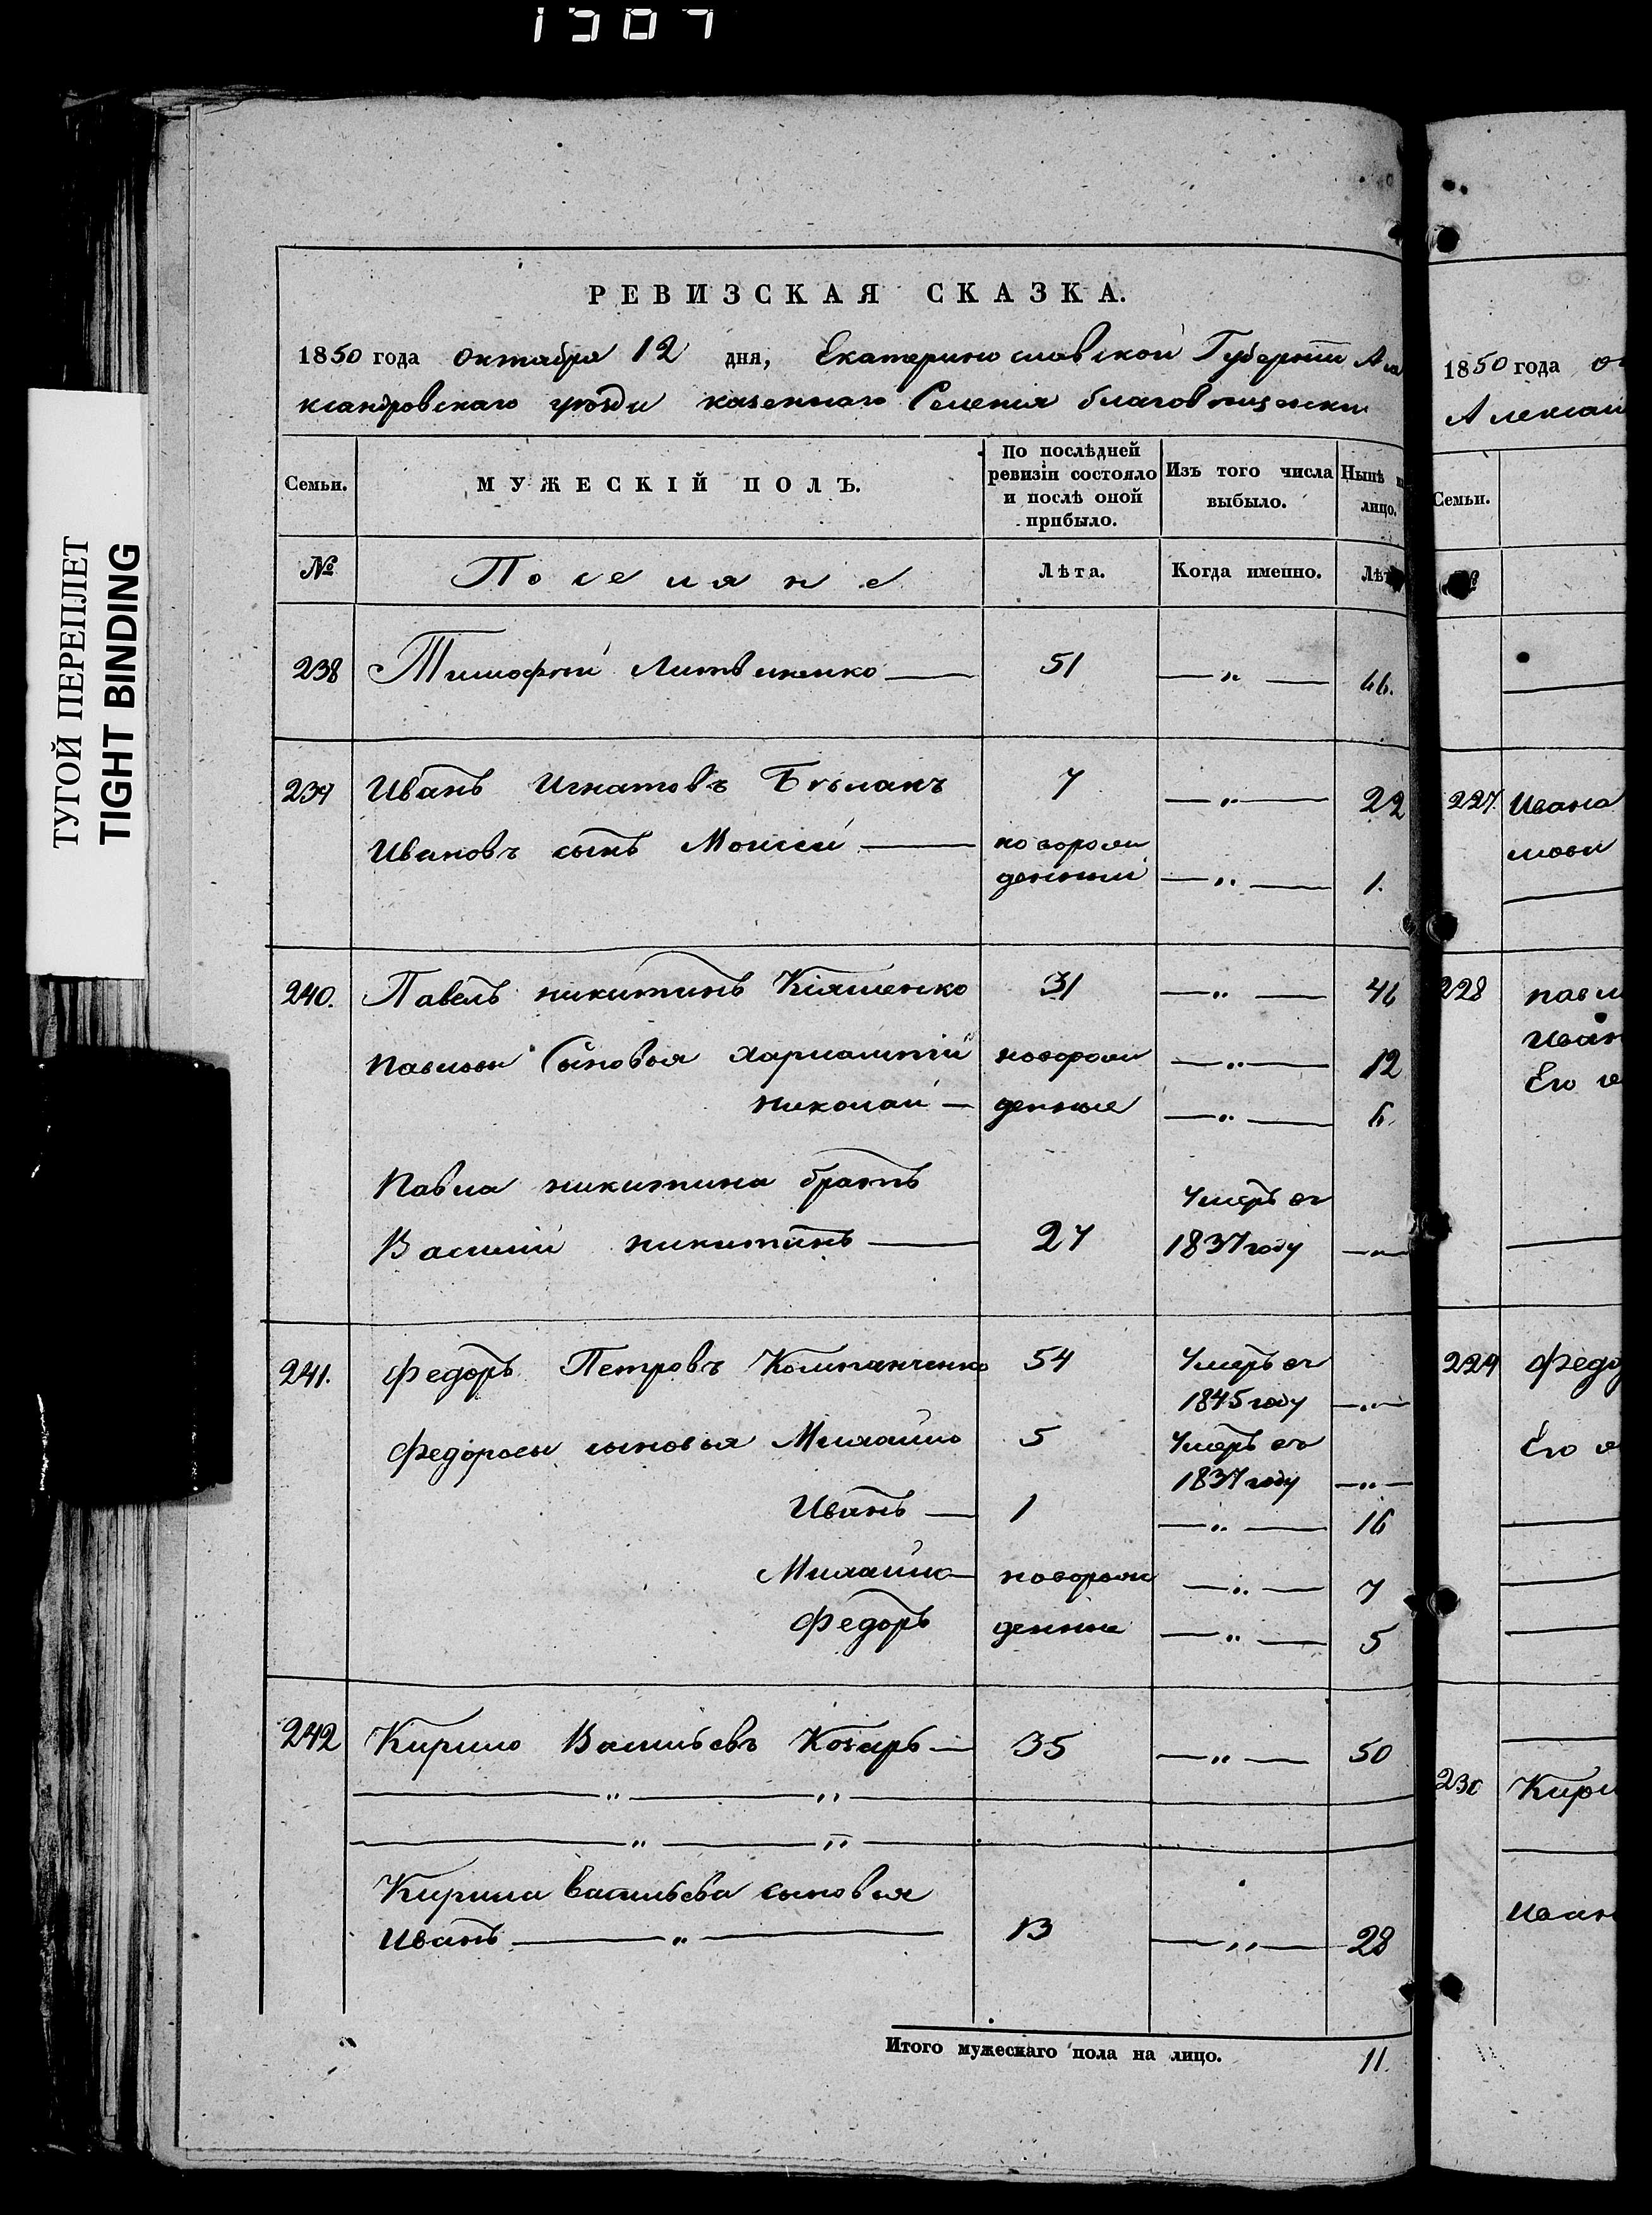 1307
ТУГОЙ ПЕРЕПЛЕТ
TIGHT BINDING
РЕВИЗСКАЯ СКАЗКА.
1850 года октября 12 дня, Екатеринославской Губернии Але
ксандровскаго уѣзда казеннаго Селения благовещенки
Семьи.
МУЖЕСКІЙ ПОЛЪ.
По послѣдней ревизіи состояло и послѣ оной прибыло.
Изъ того числа выбыло.
Нынѣ на лицо.
№ Поселяне Лѣта. Когда именно. Лѣта
238 Тимофѣй Литвиненко — 51 — „ — 66.
239 Иванъ Игнатовъ Бѣлакъ 7 — „ — 22
Ивановъ сынъ Моисей — новорож
денный — „ — 1.
240. Павелъ никитинъ Кіяшенко 31 — „ — 46
Павловы Сыновья Харлампій новорож — „ — 12
николай — денные — „ — 6.
Павла никитина братъ Умеръ въ
Василий никитинъ — 27 1837 году — „ —
241. Федоръ Петровъ Компанченко 54 Умеръ въ
1845 году — „ —
Федоровы сыновья Михайло 5 Умеръ въ
1837 году — „ —
Иванъ — 1 — „ — 16
Михайло — новорож — „ — 7
Федоръ денные — „ — 5
242 Кирило Васильевъ Козарь — 35 — „ — 50
— „ — „ —
— „ — „ —
Кирила Васильева сыновья
Иванъ — „ — 13 — „ — 28
Итого мужескаго пола на лицо. 11.
1850 года
Александ
Семьи.
№
227 Ивана
228 павл
Иван
Его
229 Федо
Его
230 Кири
Иван